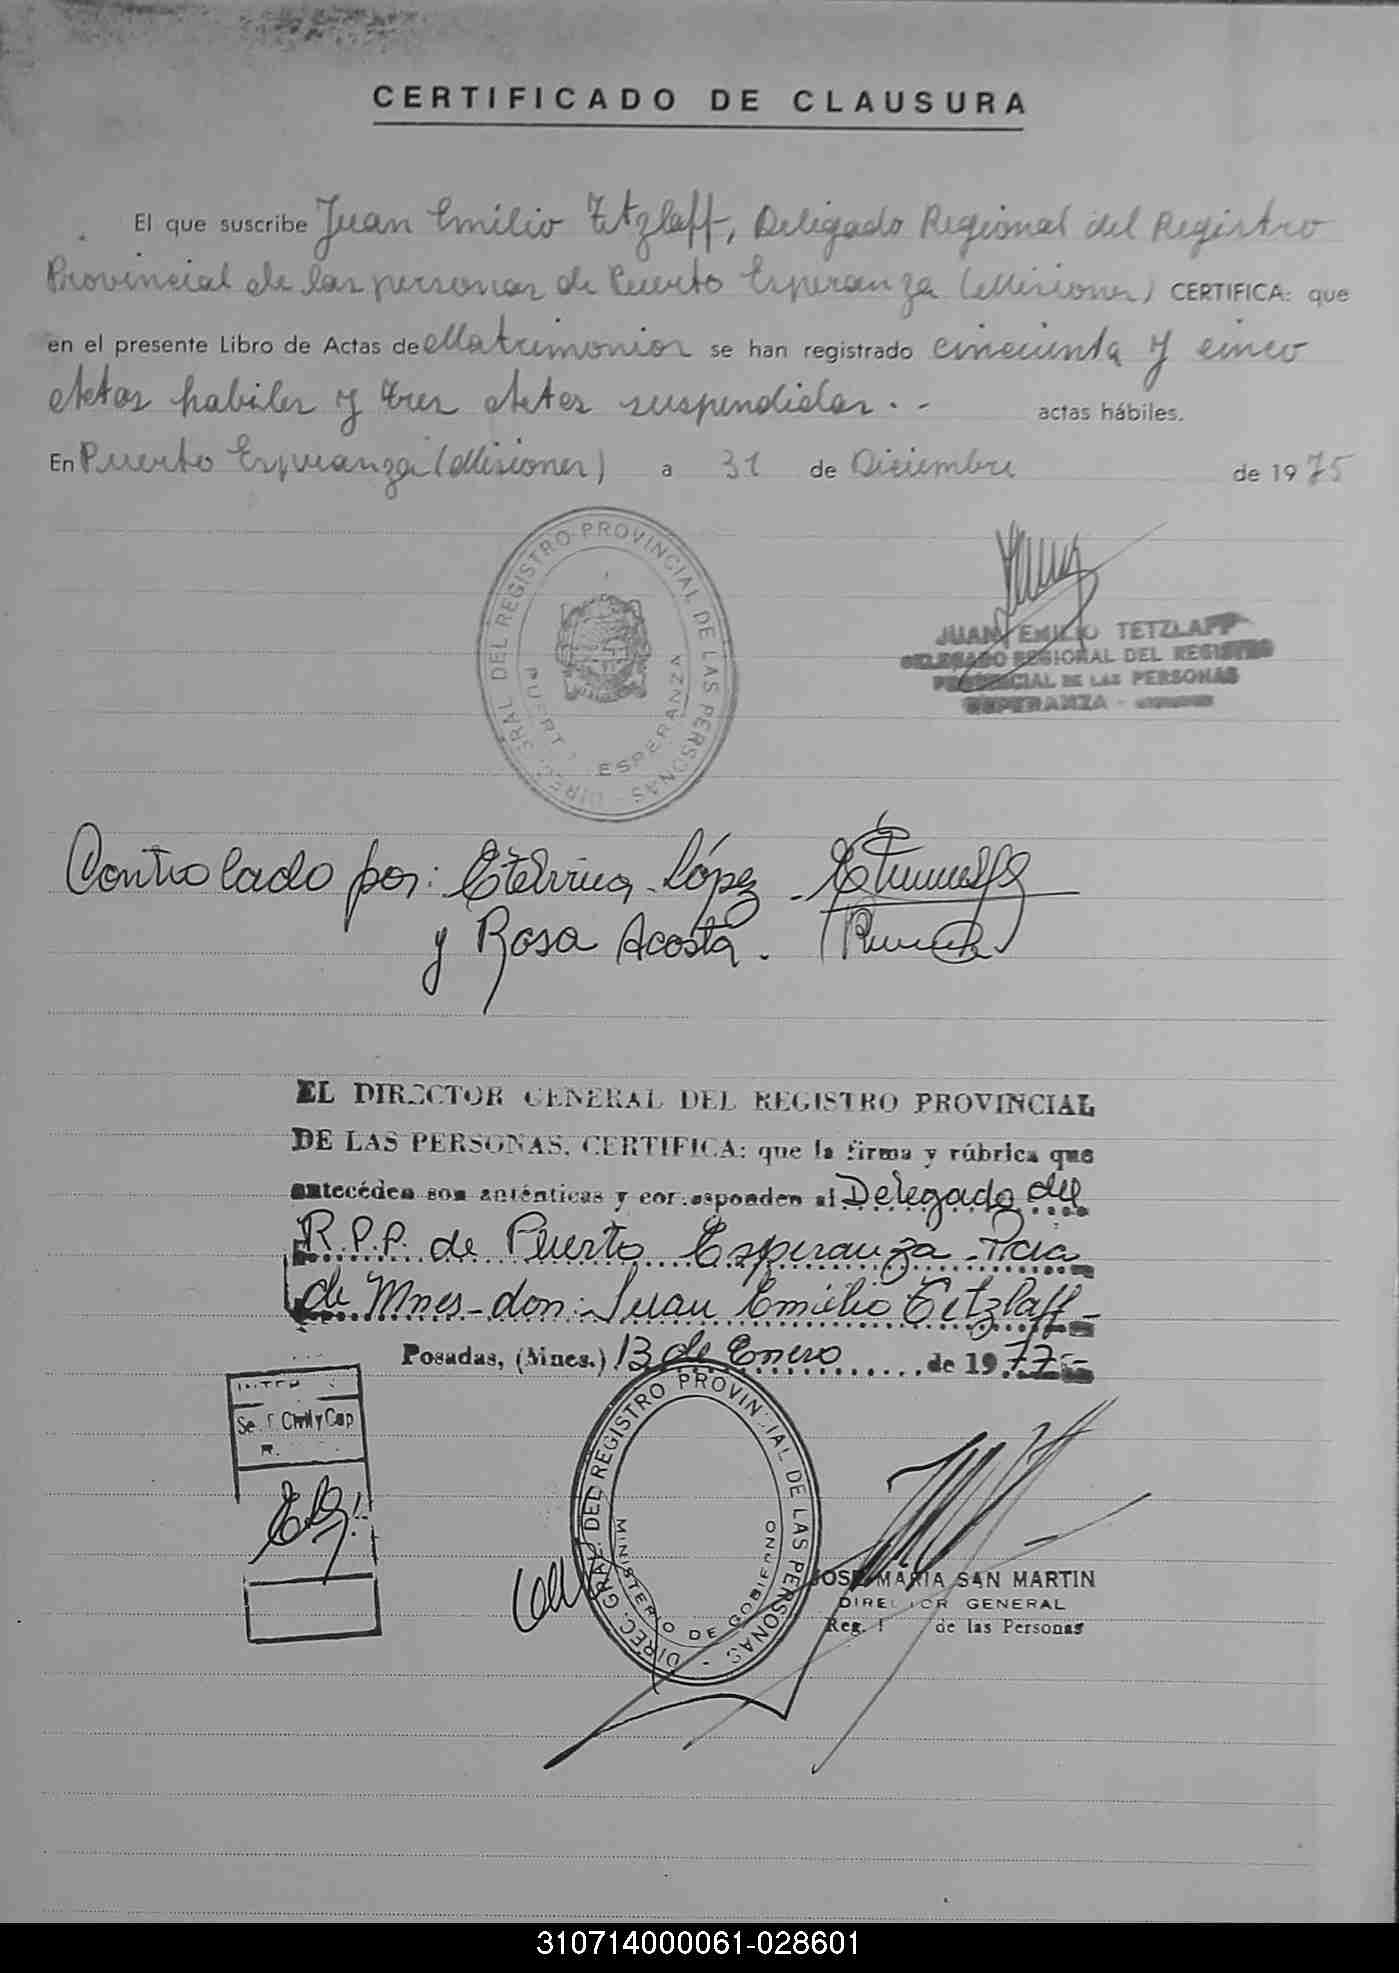 CERTIFICADO DE CLAUSURA
El que suscribe Juan Emilio Tetzlaff, Delegado Regional del Registro
Provincial de las personas de Puerto Esperanza (Misiones) CERTIFICA: que
en el presente Libro de Actas de Matrimonios se han registrado cincuenta y cinco
Actas habiles y tres Actas suspendidas.- - actas hábiles.
En Puerto Esperanza (Misiones) a 31 de Diciembre de 1975
DIREC. GRAL DEL REGISTRO PROVINCIAL DE LAS PERSONAS
PUERT ESPERANZA
JUAN EMILIO TETZLAFF
DELEGADO REGIONAL DEL REGISTRO
PROVINCIAL DE LAS PERSONAS
ESPERANZA -
Controlado por: Etelvina López -
y Rosa Acosta.
EL DIRECTOR GENERAL DEL REGISTRO PROVINCIAL
DE LAS PERSONAS, CERTIFICA: que la firma y rúbrica que
antecéden son auténticas y corresponden al Delegado del
R.P.P. de Puerto Esperanza - Pcia
de Mnes - don: Juan Emilio Tetzlaff -
Posadas, (Mnes.) 13 de Enero de 1977.-
Civil y Cap
DIREC. GRAL. DEL REGISTRO PROVINCIAL DE LAS PERSONAS -
MINISTERIO DE GOBIERNO
JOSE MARIA SAN MARTIN
DIRECTOR GENERAL
Reg. de las Personas
310714000061-028601